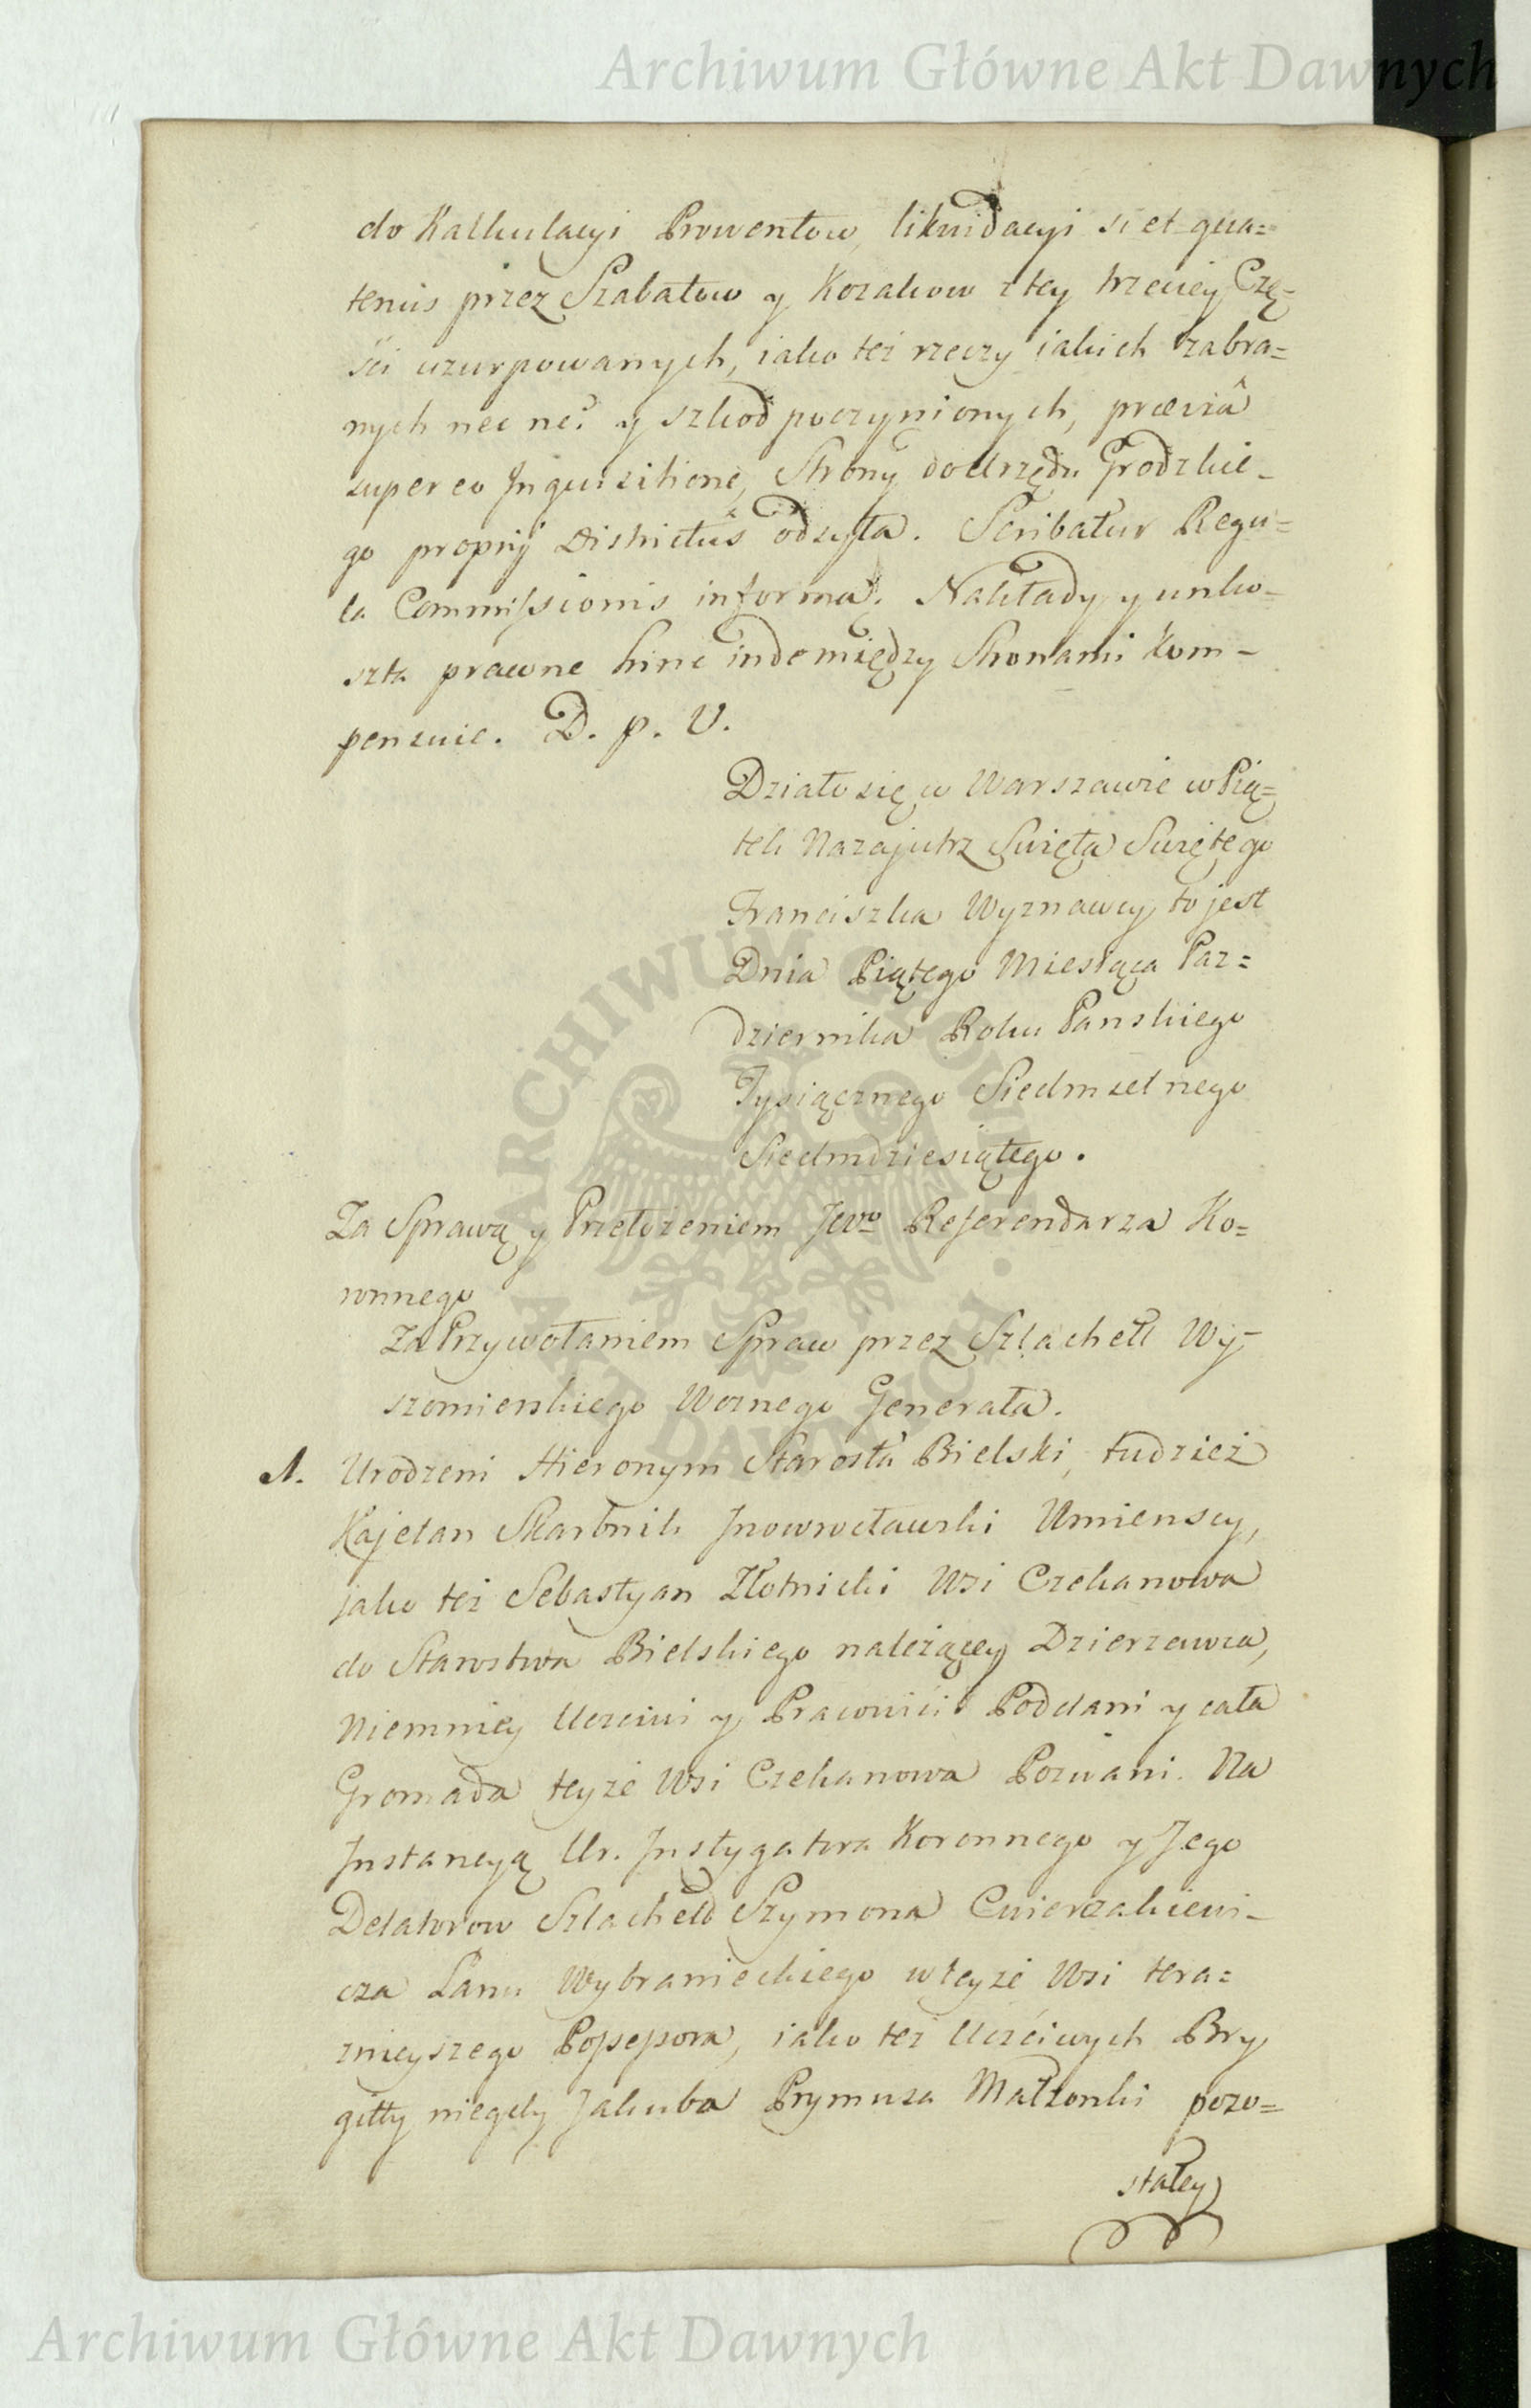 Archiwum Główne Akt Dawnych
do Kalkulacyi Prowentow, likwidacyi si et qua=
tenus przez Szabatow y Kozakow z tey trzeciey Czę=
sci uzurpowanych, iako też rzeczy iakich zabra=
nych nec ne? y szkod poczynionych, præviâ
super eo Inquisitione, Strony do Urzędu Grodzkie-
go proprij Districtûs odsyła. Scribatur Regu=
la Commissionis in forma. Nakłady y unko-
szta prawne hinc inde między Stronami kom-
penzuie. D. p. V.
Działo się w Warszawie w Pią=
tek Nazajutrz Święta Swiętego
Franciszka Wyznawcy, to jest
Dnia Piątego Miesiąca Paz=
dziernika Roku Panskiego
Tysiącznego Siedmsetnego
Siedmdziesiątego.
Za Sprawą y Przełożeniem Jgo Referendarza Ko=
ronnego
Za Przywołaniem Spraw przez Szlachett Wy-
szomierskiego Woznego Generała.
1. Urodzeni Hieronym Starosta Bielski, tudzież
Kajetan Skarbnik Jnowrocławski Umienscy,
jako też Sebastyan Złotnicki Wsi Czekanowa
do Starostwa Bielskiego należącey Dzierzawca,
Niemniey Uczciwi y Pracowici Poddani y cała
Gromada teyże Wsi Czekanowa Pozwani. Na
Jnstancyą Ur. Jnstygatora Koronnego y Jego
Delatorow Szlachett Szymona Cwierzakiewi-
cza Łanu Wybranieckiego w teyże Wsi tera=
znieyszego Possessora, iako też Uczciwych Bry
gitty niegdy Jakuba Prymusa Małżonki pozo=
stałey
Archiwum Główne Akt Dawnych